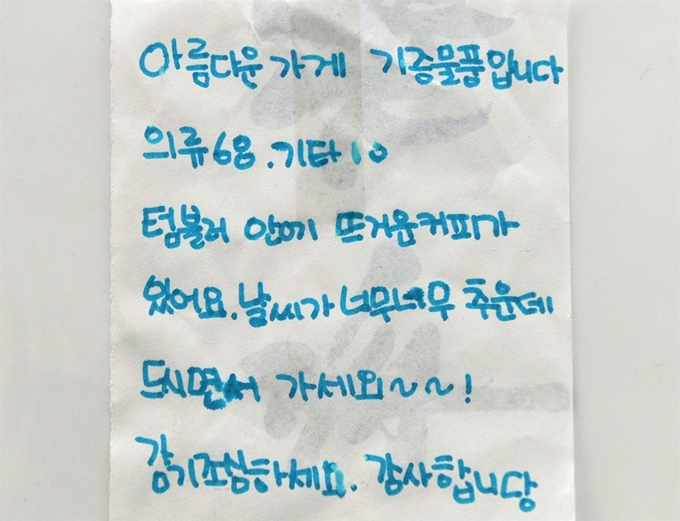 아름다운가게 기증물품입니다
의류68.기타10
텀블러 안에 뜨거운커피가
있어요.날씨가 너무너무 추운데
드시면서 가세요~~!
감기조심하세요. 감사합니당